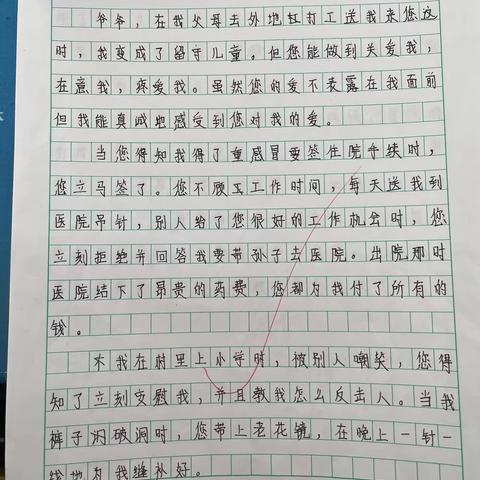 爷爷，在我父母去外地打工送我来您这
时，我变成了留守儿童。但您能做到关爱我，
在意我，疼爱我。虽然您的爱不表露在我面前
但我能真诚地感受到您对我的爱。
当您得知我得了重感冒要签住院手续时，
您立马签了。您不顾工作时间，每天送我到
医院吊针，别人给了您很好的工作机会时，您
立刻拒绝并回答我要带孙子去医院。出院那时
医院结下了昂贵的药费，您却为我付了所有的
钱。
我在村里上小学时，被别人嘲笑，您得
知了立刻安慰我，并且教我怎么反击人。当我
裤子闲破洞时，您带上老花镜，在晚上一针一
线地为我缝补好。